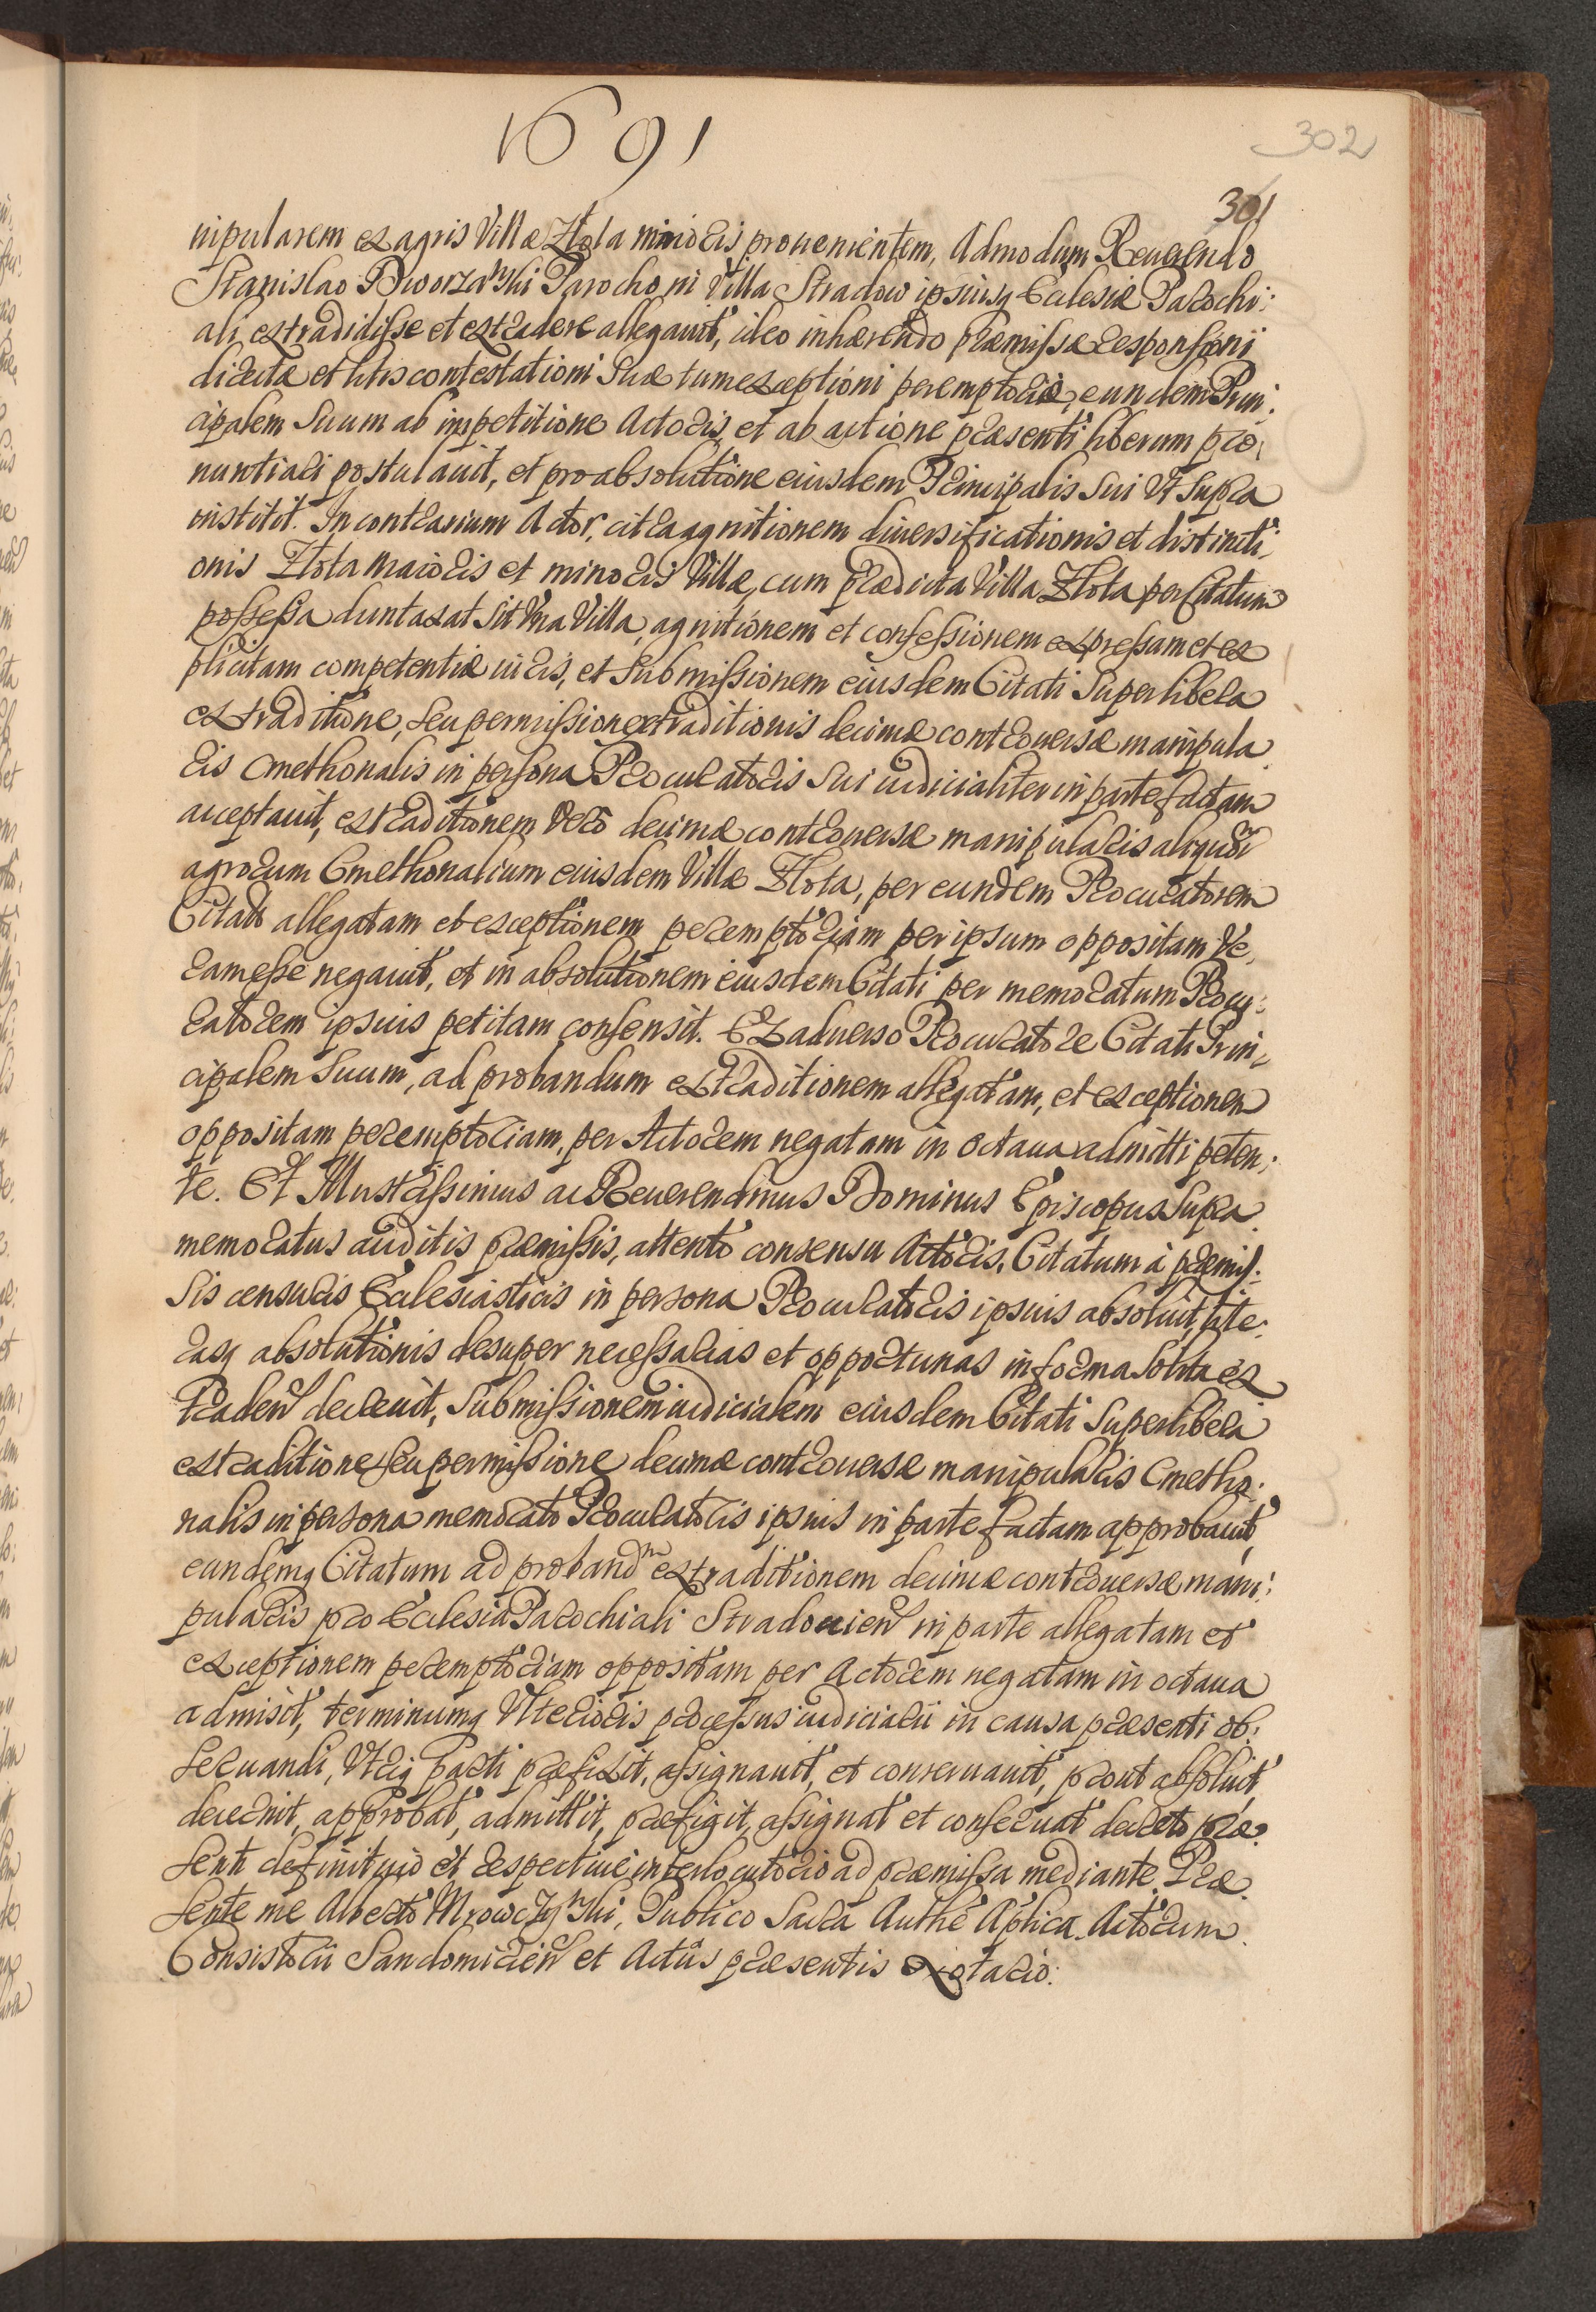 1691
302
301
nipularem ex agris Villæ Złota minoris prouenientem, Admodum Reuerendo
Stanislao Dworzanski Parocho in Villa Stradow ipsiusq Ecclesiæ Parochi:
ali extradidisse et extradere allegauit, ideo inhærendo præmissæ responsioni
directæ et litis contestationi suæ tum exceptioni peremptoriæ, eundem Prin:
cipalem suum ab impetitione Actoris, et ab actione præsenti liberum pro:
nuntiari postulauit, et pro absolutione eiusdem Principalis sui Vt supra
institit. In contrarium Actor, citra agnitionem diuersificationis et distincti:
onis Złota maioris et minoris Villæ, cum prædicta Villa Złota per Citatum
possessa duntaxat sit Vna Villa, agnitionem et confessionem expressam et ex
plicitam competentiæ iuris, et submissionem eiusdem Citati super libera
extraditione, seu permissione extraditionis decimæ controuersæ manipula
ris Cmethonalis in persona Procuratoris sui iudicialiter in parte factam
acceptauit, extraditionem Vero decimæ controuersæ manipularis aliquor
agrorum Cmethonalium eiusdem Villæ Złota, per eundem Procuratorem
Citati allegatam et exceptionem peremptoriam per ipsum oppositam Ve,
ram esse negauit, et in absolutionem eiusdem Citati per memoratum Procu:
ratorem ipsius petitam consensit. Ex aduerso Procuratore Citati Prin:
cipalem suum, ad probandum extraditionem allegatam, et exceptionem
oppositam peremptoriam, per Actorem negatam in octaua admitti peten:
te. Et Illustrissimus ac Reuerendmus Dominus Episcopus supra
memoratus auditis præmissis, attento consensu Actoris, Citatum à præmis:
sis censuris Ecclesiasticis in persona Procuratoris ipsius absoluit, lite:
rasq absolutionis desuper necessarias et opportunas in forma solita ex
traden decreuit, submissionem iudicialem eiusdem Citati super libera
extraditione seu permissione decimæ controuersæ manipularis Cmetho:
nalis in persona memorato Procuratoris ipsius in parte factam approbauit,
eundemq Citatum ad proband^m extraditionem decimæ controuersæ mani:
pularis pro Ecclesia Parochiali Stradouien in parte allegatam et
exceptionem peremptoriam oppositam per Actorem negatam in octaua
admisit, terminumq Vlterioris processus iudiciarii in causa præsenti ob:
seruandi, Vtriq parti præfixit, assignauit, et conseruauit, prout absoluit,
decernit, approbat, admittit, præfigit, assignat et conseruat decreto præ:
senti definitiuo et respectiue interlocutorio ad præmissa mediante. Præ:
sente me Alberto Mrowczynski, Publico Sacra Authe Aplica. Actorum
Consistorii Sandomirien et Actûs præsentis Notario.